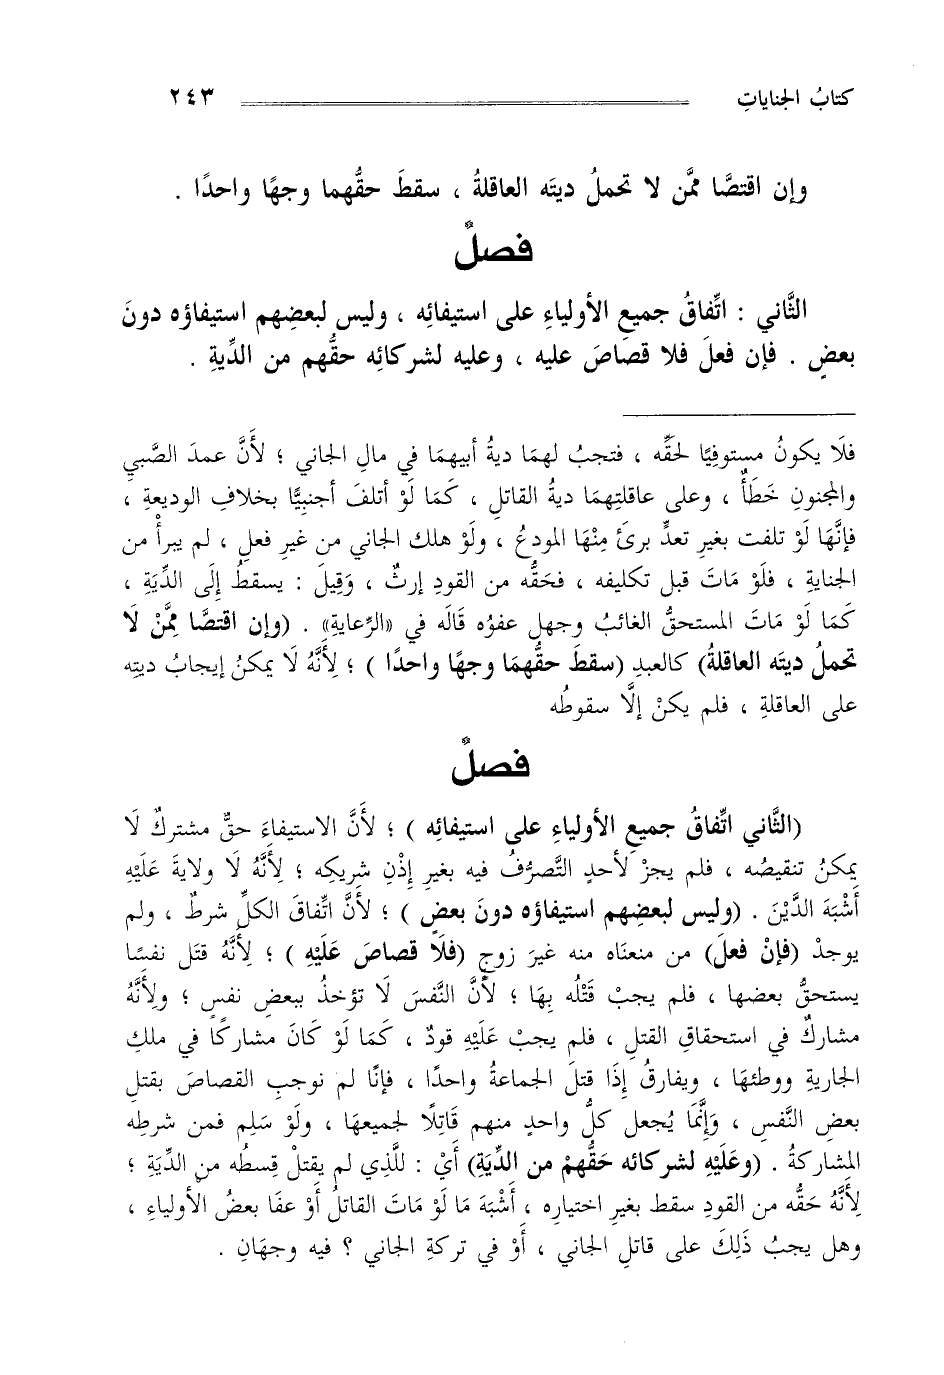 كتابُ الجناياتِ ٢٤٣
وإن اقتصَّا ممَّن لا تحملُ ديتَه العاقلةُ ، سقطَ حقُّهما وجهًا واحدًا .
فصلٌ
الثَّاني : اتِّفاقُ جميعِ الأولياءِ على استيفائِه ، وليس لبعضِهم استيفاؤه دونَ
بعضٍ . فإن فعلَ فلا قصاصَ عليه ، وعليه لشركائِه حقُّهم من الدِّيةِ .
فلَا يكونُ مستوفِيًا لحقِّه ، فتجبُ لهمَا ديةُ أبيهمَا في مالِ الجاني ؛ لأَنَّ عمدَ الصَّبيِ
والمجنونِ خَطَأٌ ، وعلى عاقلتِهمَا ديةُ القاتلِ ، كَمَا لَوْ أتلفَ أجنبِيًّا بخلافِ الوديعةِ ،
فإنَّهَا لَوْ تلفت بغيرِ تعدٍّ برئَ مِنْهَا المودعُ ، ولَوْ هلك الجاني من غيرِ فعلٍ ، لم يبرأْ من
الجنايةِ ، فلَوْ مَاتَ قبل تكليفه ، فحَقُّه من القودِ إرثٌ ، وَقِيلَ : يسقطُ إِلَى الدِّيَةِ ،
كَمَا لَوْ مَاتَ المستحقُّ الغائبُ وجهل عفوُه قَالَه في «الرِّعايةِ» . (وإن اقتصَّا مِمَّنْ لَا
تحملُ ديتَه العاقلةُ) كالعبدِ (سقطَ حقُّهمَا وجهًا واحدًا ) ؛ لِأَنَّهُ لَا يمكنُ إيجابُ ديتِه
على العاقلةِ ، فلم يكنْ إلَّا سقوطُه
فصلٌ
(الثَّاني اتِّفاقُ جميعِ الأولياءِ على استيفائِه ) ؛ لأَنَّ الاستيفاءَ حقٌّ مشتركٌ لَا
يمكنُ تنقيصُه ، فلم يجزْ لأحدٍ التَّصرُّفُ فيه بغيرِ إِذْنِ شريكِه ؛ لِأَنَّهُ لَا ولايةَ عَلَيْهِ
أَشْبَهَ الدَّيْنَ . (وليس لبعضِهم استيفاؤه دونَ بعضٍ ) ؛ لأَنَّ اتِّفاقَ الكلِّ شرطٌ ، ولم
يوجدْ (فإنْ فعلَ) من منعنَاه منه غيرَ زوجٍ (فلَا قصاصَ عَلَيْهِ ) ؛ لِأَنَّهُ قتَل نفسًا
يستحقُّ بعضها ، فلم يجبْ قَتْلُه بِهَا ؛ لأَنَّ النَّفسَ لَا تؤخذُ ببعضِ نفسٍ ؛ ولِأَنَّهُ
مشاركٌ في استحقاقِ القتلِ ، فلم يجبْ عَلَيْهِ قودٌ ، كَمَا لَوْ كَانَ مشاركًا في ملكِ
الجاريةِ ووطئهَا ، ويفارقُ إِذَا قتلَ الجماعةُ واحدًا ، فإنَّا لم نوجبِ القصاصَ بقتلِ
بعضِ النَّفسِ ، وَإِنَّمَا يُجعل كلُّ واحدٍ منهم قَاتِلًا لجميعهَا ، ولَوْ سَلِم فمن شرطِه
المشاركةُ . (وعَلَيْهِ لشركائه حَقُّهمْ من الدِّيَةِ) أَيْ : للَّذِي لم يقتلْ قِسطُه من الدِّيَةِ ؛
لِأَنَّهُ حَقَّه من القودِ سقط بغيرِ اختيارِه ، أَشْبَهَ مَا لَوْ مَاتَ القاتلُ أَوْ عفَا بعضُ الأولياءِ ،
وهل يجبُ ذَلِكَ على قاتلِ الجاني ، أَوْ في تركةِ الجاني ؟ فيه وجهَانِ .